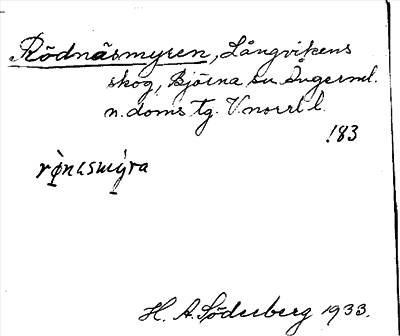 Rödnäsmyren, Långvikens
skog, Björna sn Ångerml.
n. doms tg. V.norrl l.
183
rö̀nasmýra
H. A. Söderberg 1933.